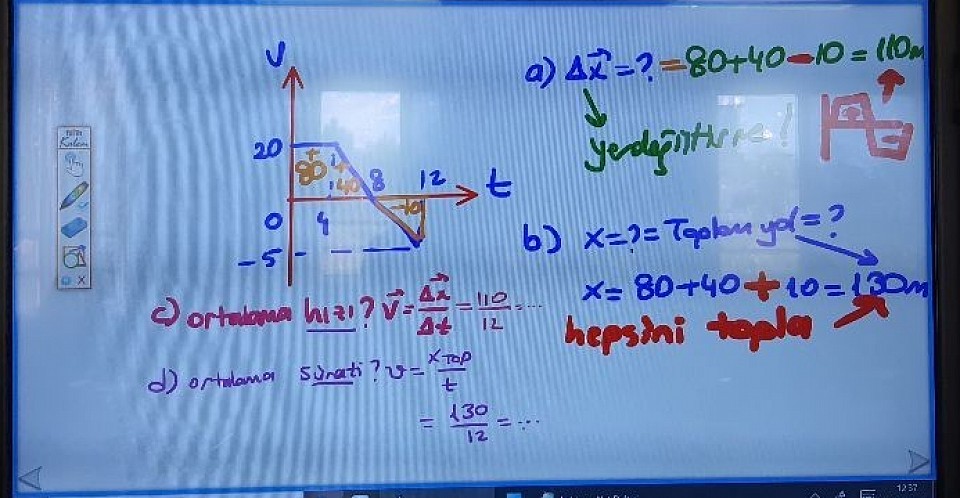 V
20
+
80
+
40
8
12
t
-10
0
4
-5
a) Δx = ? = 80+40-10 = 110m
yerdeğiştirme!
b) x=?= Toplam yol = ?
x= 80+40+10=130m
hepsini topla
c) ortalama hızı? V = Δx/Δt = 110/12 = ...
d) ortalama sürati? v = xTop/t
= 130/12 = ...
Kalem
x
12:37